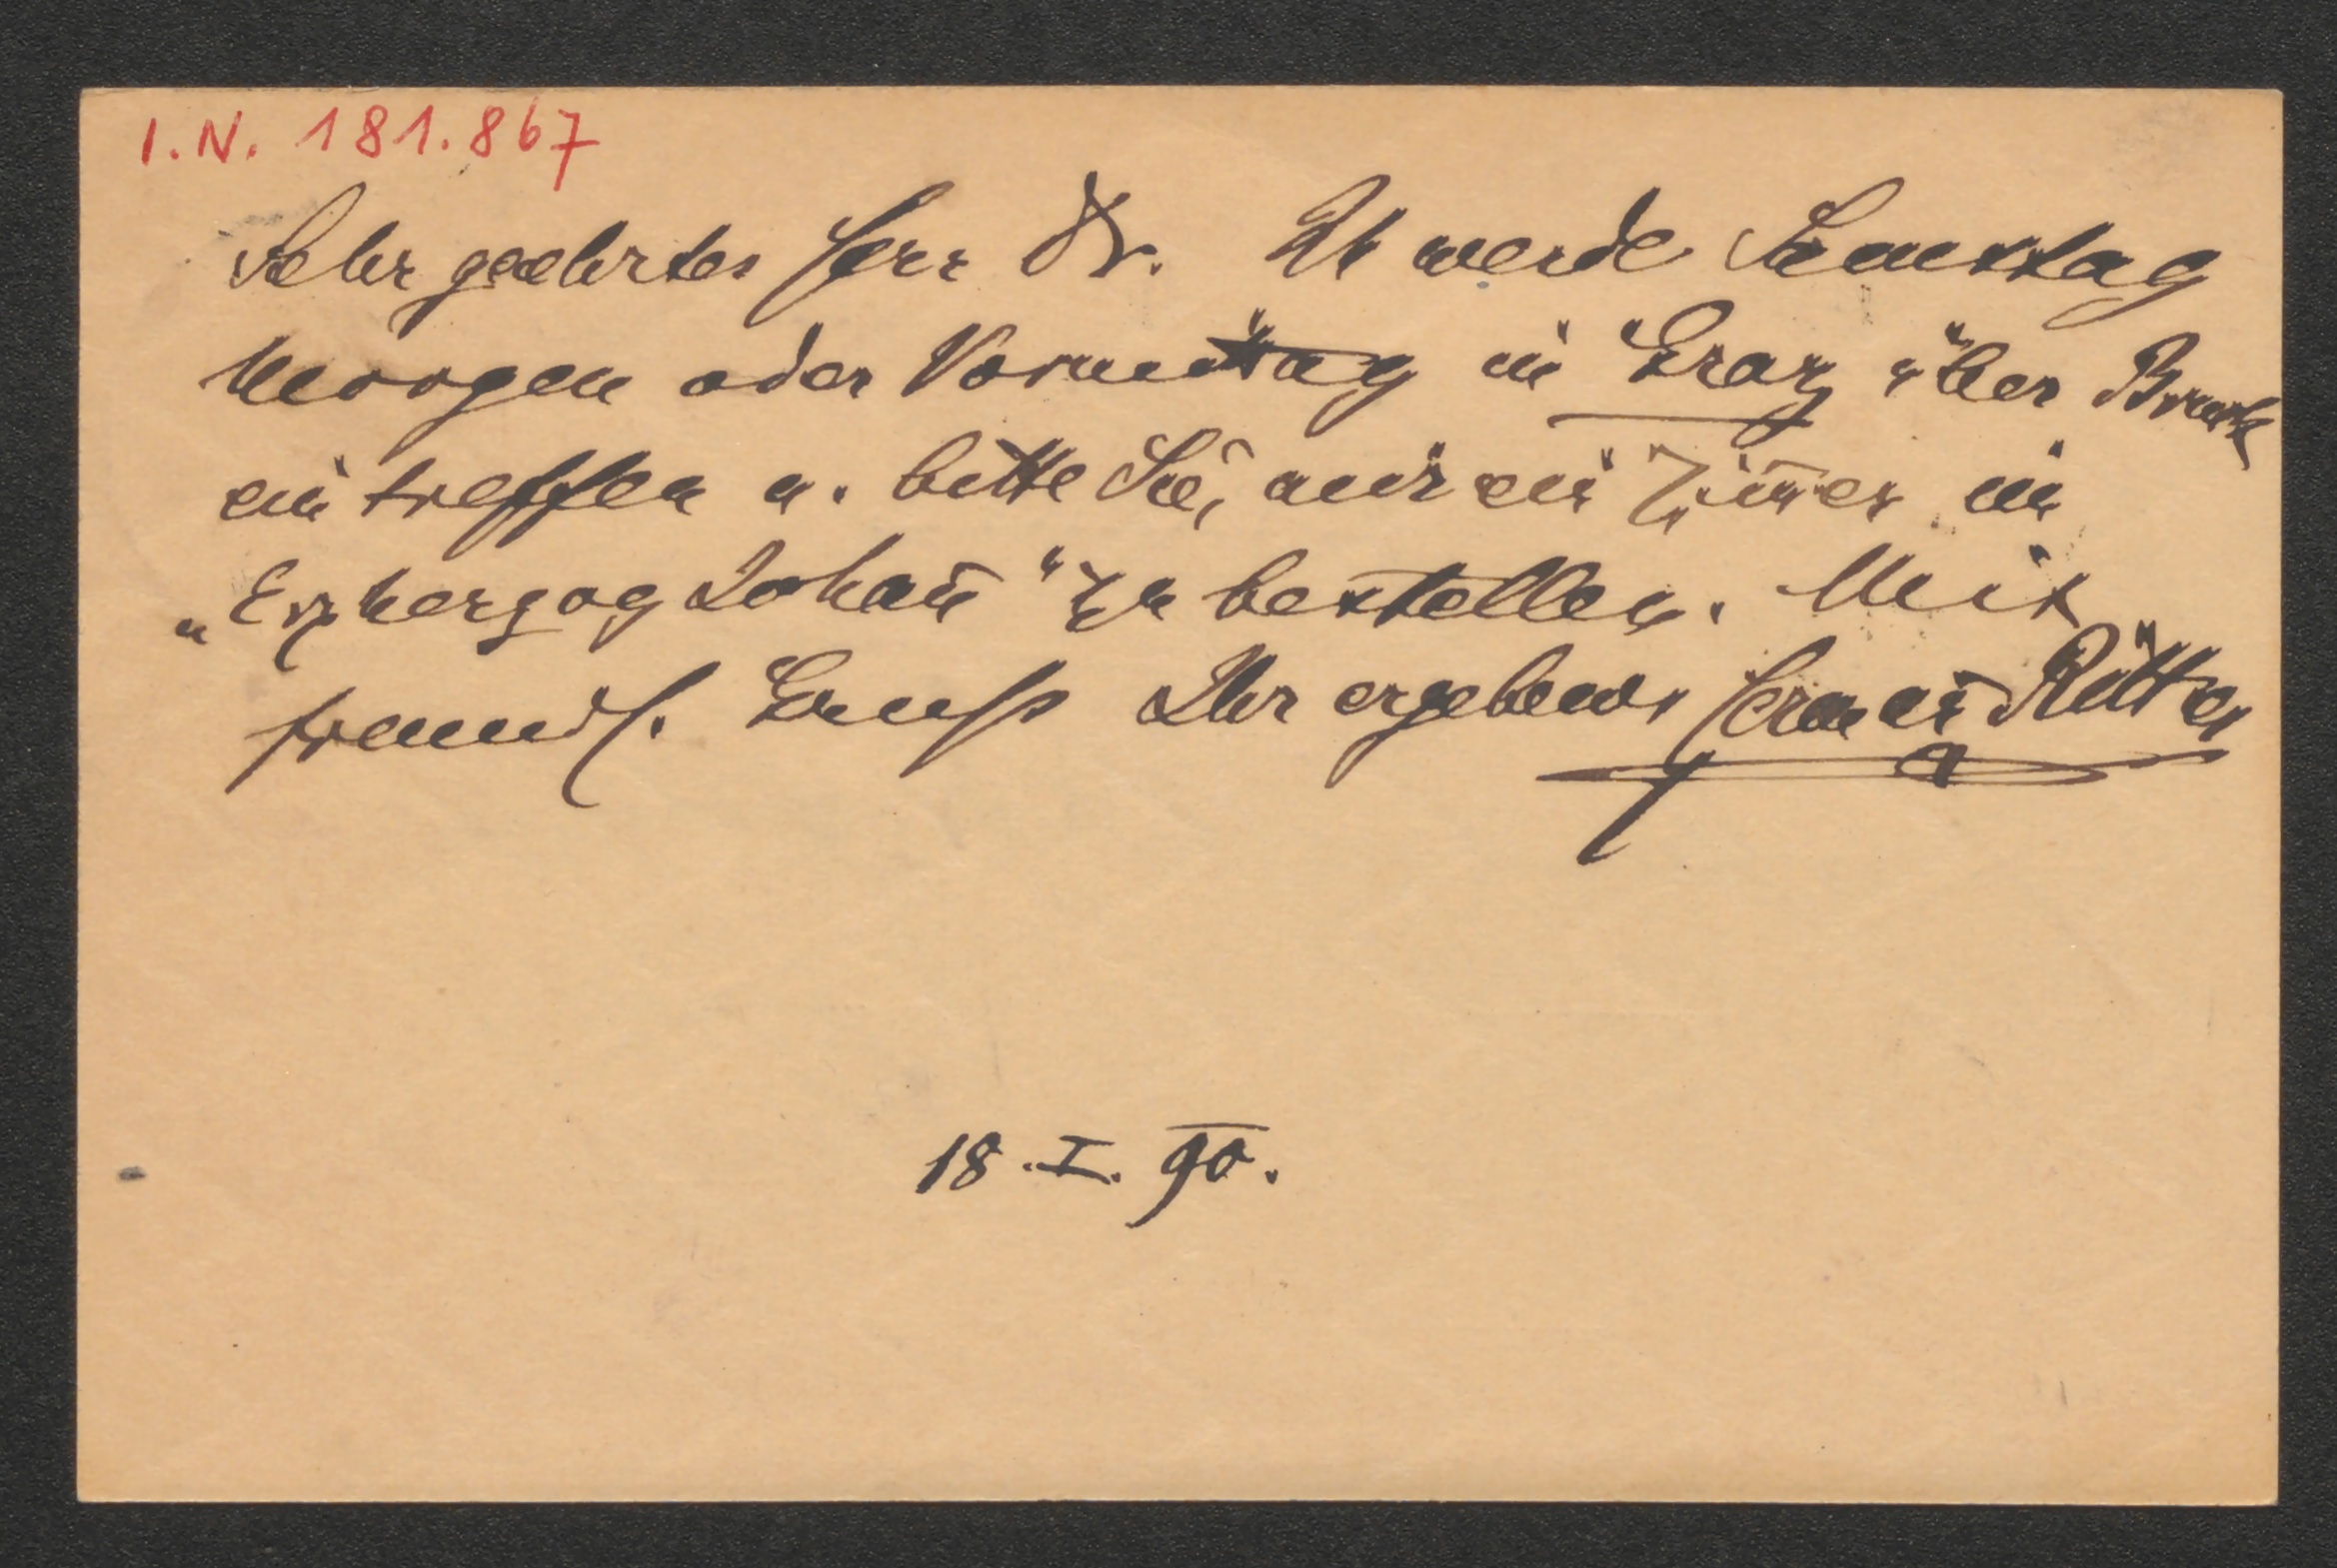 I.N. 181.867
Sehr geehrter Herr Dr. Ich werde Samstag
Morgen oder Vormittag in Graz über Bruck
eintreffen u. bitte Sie, mir ein Zim̅er im
„Erzherzog Johan̅" zu bestellen. Mit
freundl. Gruß Ihr ergebenst Herman̅ Ritter
18. I. 90.